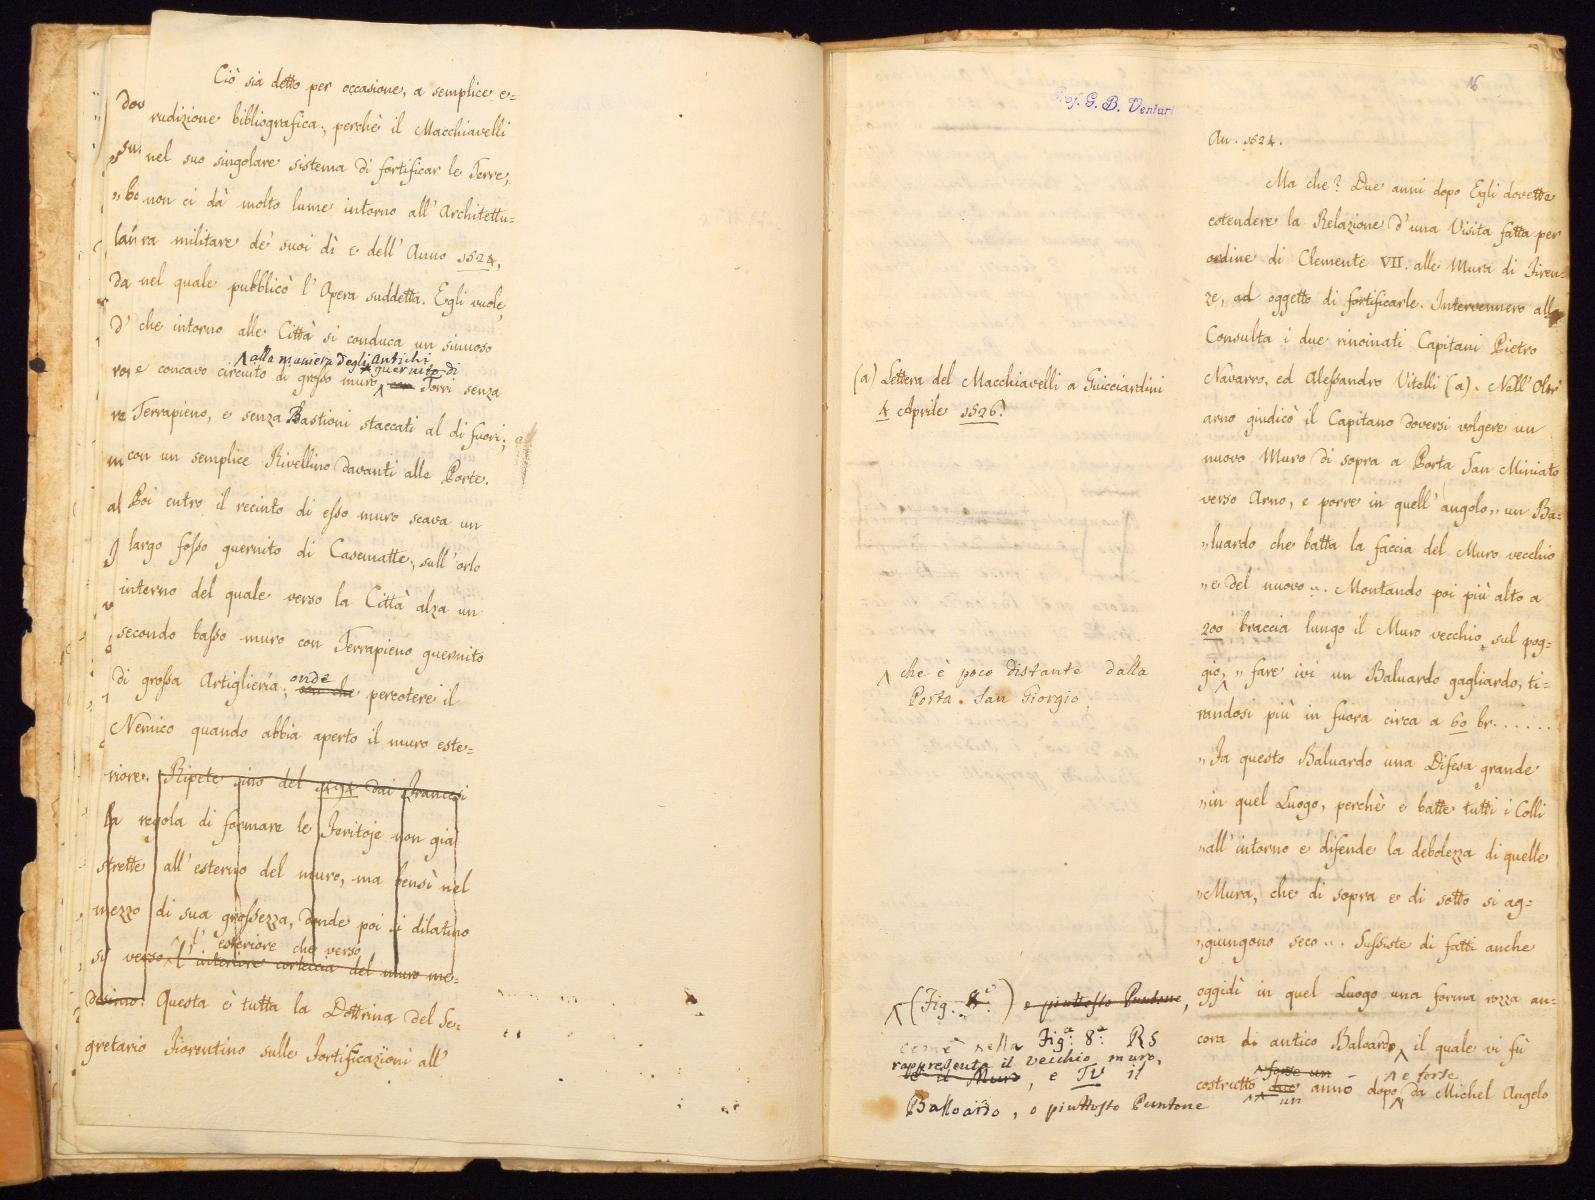 Ciò sia detto per occasione, a semplice e=
rudizione bibliografica; perchè il Macchiavelli
nel suo singolare sistema di fortificar le Terre,
non ci dà molto lume intorno all'Architettu=
ra militare de' suoi dì e dell'Anno 1524,
nel quale pubblicò l'Opera suddetta. Egli vuole,
che intorno alle Città si conduca un sinuoso
alla maniera degli antichi, guernito di
e concavo circuito di grosso muro Torri senza
Terrapieno, e senza Bastioni staccati al di fuori;
con un semplice Rivellino davanti alle Porte.
Poi entro il recinto di esso muro scava un
largo fosso guernito di Casematte; sull'orlo
interno del quale verso la Città alza un
secondo basso muro con Terrapieno guernito
di grossa Artiglieria; onde percotere il
Nemico quando abbia aperto il muro este=
riore. Ripete sino del 1494 dai Francesi
la regola di formare le Feritoje non già
strette all'esterno del muro, ma bensì nel
mezzo di sua grossezza, donde poi si dilatino
l'esteriore che verso
sì verso l'interiore corteccia del muro me=
desimo. Questa è tutta la Dottrina del Se=
gretario Fiorentino sulle Fortificazioni all'
Prof. G. B. Venturi
16
An. 1524.
Ma che? Due anni dopo Egli dovette
estendere la Relazione d'una Visita fatta per
ordine di Clemente VII. alle Mura di Firen=
ze, ad oggetto di fortificarle. Intervennero alla
Consulta i due rinomati Capitani Pietro
Navarro, ed Alessandro Vitelli (a). Nell'Oltr'
arno giudicò il Capitano doversi volgere un
nuovo Muro di sopra a Porta San Miniato
verso Arno, e porre in quell'angolo „ un Ba=
„luardo che batta la faccia del Muro vecchio
„e del nuovo „. Montando poi più alto a
200 braccia lungo il Muro vecchio sul pog=
gio, „ fare ivi un Baluardo gagliardo, ti=
randosi più in fuora circa a 60 br. . . . . .
„Fa questo Baluardo una Difesa grande
„in quel Luogo, perchè e batte tutti i Colli
„all'intorno e difende la debolezza di quelle
„Mura, che di sopra e di sotto si ag=
„giungono seco „. Sussiste di fatti anche
oggidì in quel Luogo una forma rozza an=
cora di antico Baloardo, il quale vi fù
forse un e forse
costrutto due un anno dopo da Michel Angelo
(a) Lettera del Macchiavelli a Guicciardini
4 Aprile 1526.
che è poco distante dalla
Porta San Giorgio
(Fig. 8ª.) o piuttosto Puntone,
come nella Figª. 8ª. RS
rappresenta il vecchio muro,
e il Muro, e TV il
Balloardo, o piuttosto Puntone